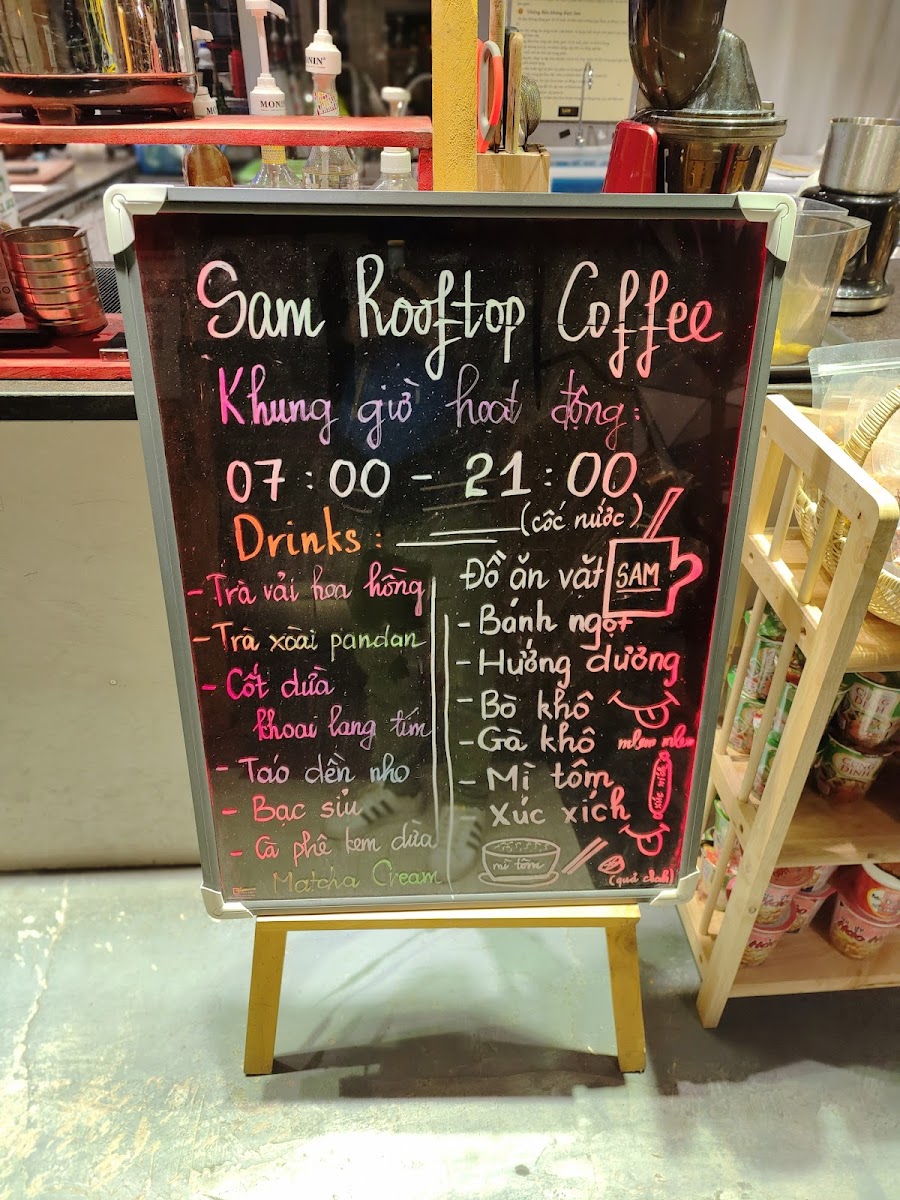 Sam Rooftop Coffee
Khung giờ hoạt động:
07:00 - 21:00
Drinks:
(cốc nước)
SAM
- Trà vải hoa hồng
- Trà xoài pandan
- Cốt dừa
khoai lang tím
- Táo dền nho
- Bạc sỉu
- Cà phê kem dừa
Matcha Cream
Đồ ăn vặt
- Bánh ngọt
- Hướng dương
- Bò khô
- Gà khô
mlem mlem
- Mì tôm
- Xúc xích
xúc xích
mì tôm
(quả chanh)
MONIN